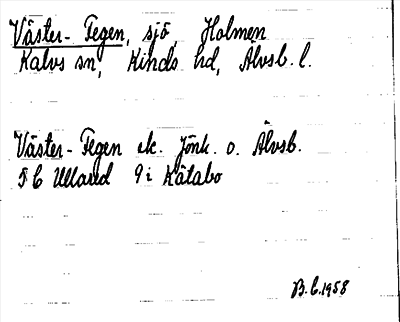 Väster-Fegen, sjö, Holmen
Kalvs sn, Kinds hd, Älvsb. l.
Väster-Fegen ek. Jönk. o. Älvsb.
Ulland 9 i Kåtabo
B.C. 1958